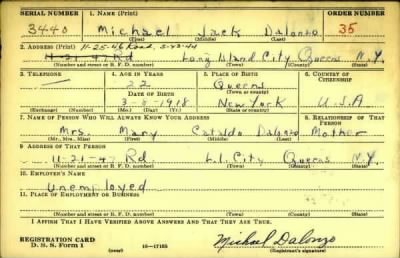 SERIAL NUMBER 1. NAME (Print) ORDER NUMBER
3440 Michael Jack Dalonzo 35
(First) (Middle) (Last)
2. ADDRESS (Print) 11-25-46 Road, 5-43-44
11-21-47 Rd Long Island City Queens N.Y.
(Number and street or R. F. D. number) (Town) (County) (State)
3. TELEPHONE 4. AGE IN YEARS 5. PLACE OF BIRTH 6. COUNTRY OF CITIZENSHIP
22 Queens
(Town or county)
DATE OF BIRTH
3-8-1918 New York U.S.A
(Exchange) (Number) (Mo.) (Day) (Yr.) (State or country)
7. NAME OF PERSON WHO WILL ALWAYS KNOW YOUR ADDRESS 8. RELATIONSHIP OF THAT PERSON
Mrs. Mary Cataldo Dalonzo Mother
(Mr., Mrs., Miss) (First) (Middle) (Last)
9. ADDRESS OF THAT PERSON
11-21-47 Rd. L.I. City Queens N.Y.
(Number and street or R. F. D. number) (Town) (County) (State)
10. EMPLOYER'S NAME
Unemployed
11. PLACE OF EMPLOYMENT OR BUSINESS
(Number and street or R. F. D. number) (Town) (County) (State)
I AFFIRM THAT I HAVE VERIFIED ABOVE ANSWERS AND THAT THEY ARE TRUE.
REGISTRATION CARD
D. S. S. FORM 1 (over) 16-17105 Michael Dalonzo
(Registrant's signature)